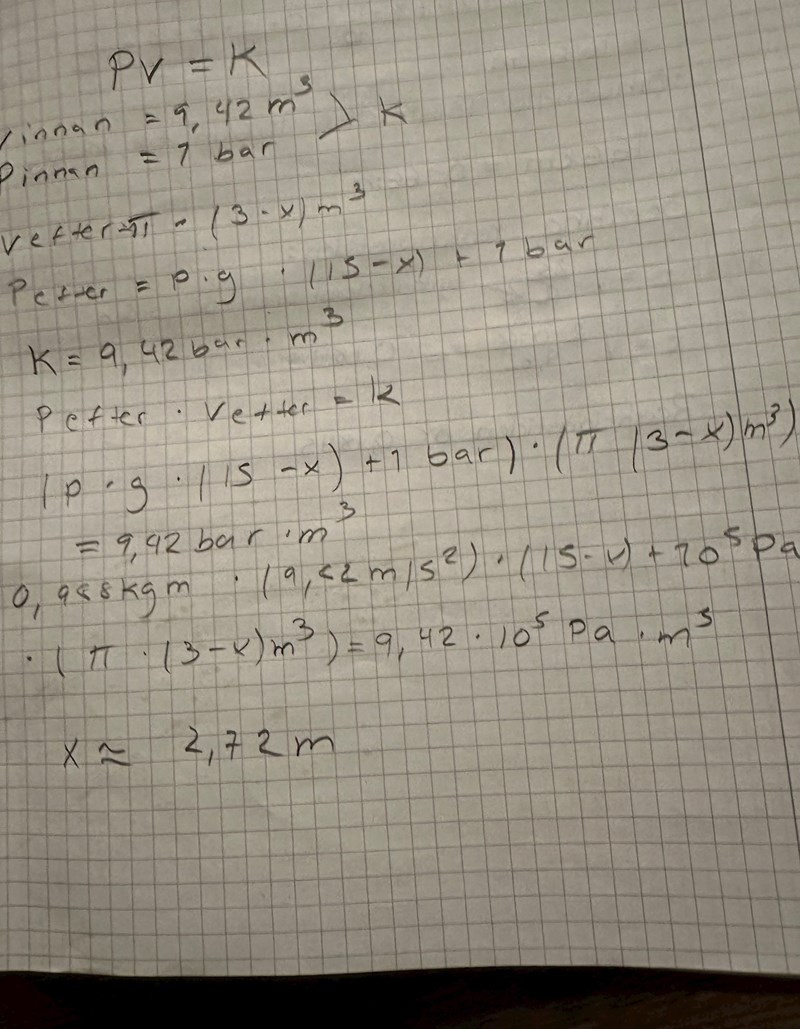 PV = K
Vinnan = 9,42 m³ > k
Pinnan = 1 bar
Vefter = π · (3-x) m³
Pefter = ρ·g · (15-x) + 1 bar
K = 9,42 bar · m³
Pefter · Vefter = k
(ρ · g · (15-x) + 1 bar) · (π (3-x) m³)
= 9,42 bar · m³
0,988 kgm · (9,82 m/s²) · (15-x) + 10⁵ Pa
· (π · (3-x) m³) = 9,42 · 10⁵ Pa · m³
x ≈ 2,72 m